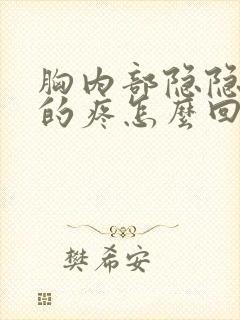 胸内部隐隐
的疼怎麽回
樊希安